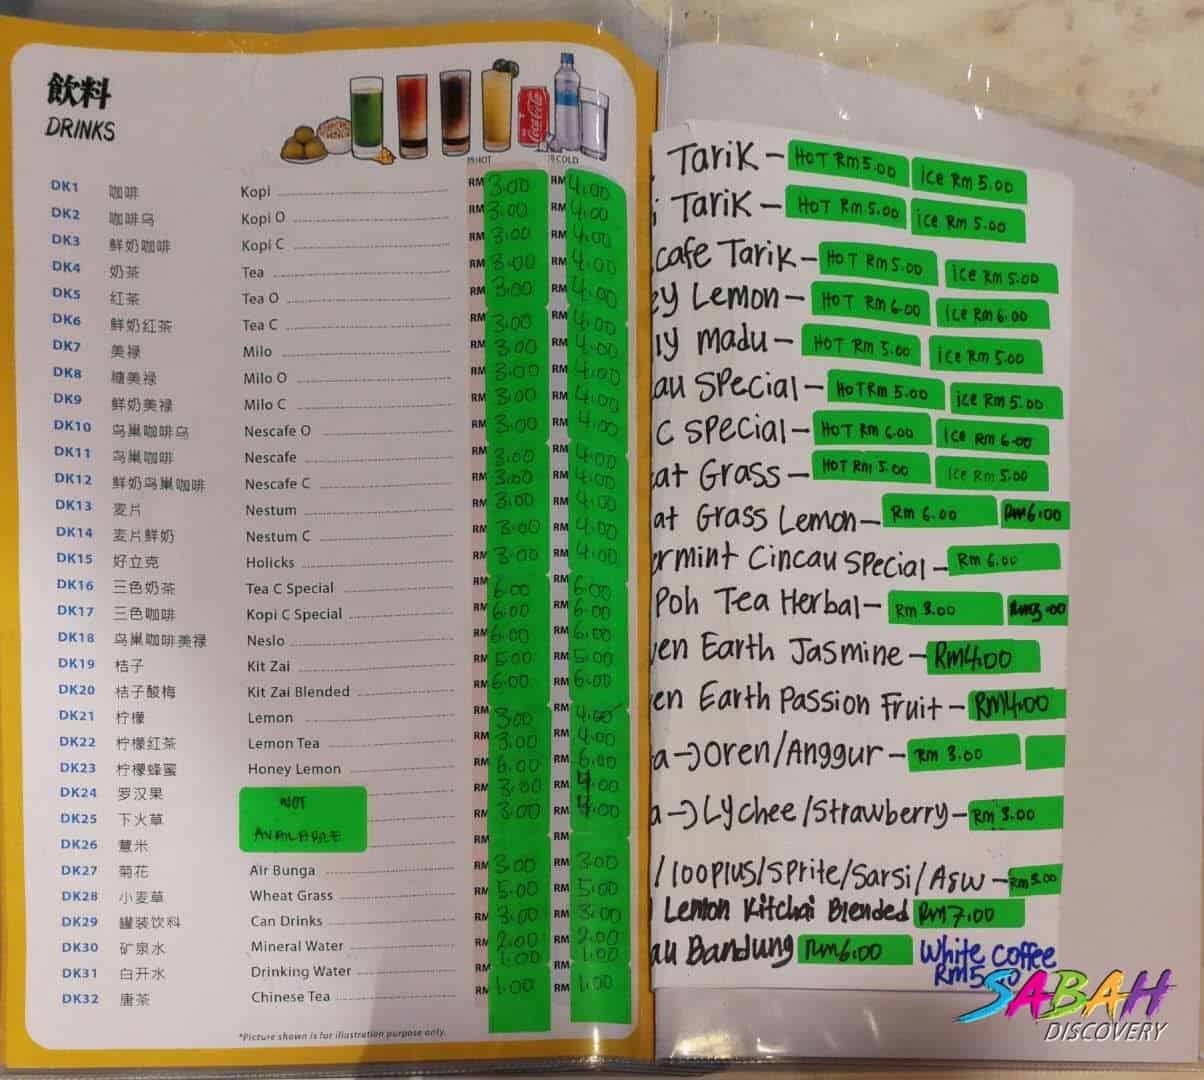 飲料
DRINKS
Coca-Cola
热HOT 冷COLD
DK1 咖啡 Kopi RM 3.00 RM 4.00
DK2 咖啡乌 Kopi O RM 3.00 RM 4.00
DK3 鲜奶咖啡 Kopi C RM 3.00 RM 4.00
DK4 奶茶 Tea RM 3.00 RM 4.00
DK5 红茶 Tea O RM 3.00 RM 4.00
DK6 鲜奶红茶 Tea C RM 3.00 RM 4.00
DK7 美禄 Milo RM 3.00 RM 4.00
DK8 糖美禄 Milo O RM 3.00 RM 4.00
DK9 鲜奶美禄 Milo C RM 3.00 RM 4.00
DK10 鸟巢咖啡乌 Nescafe O RM 3.00 RM 4.00
DK11 鸟巢咖啡 Nescafe RM 3.00 RM 4.00
DK12 鲜奶鸟巢咖啡 Nescafe C RM 3.00 RM 4.00
DK13 麦片 Nestum RM 3.00 RM 4.00
DK14 麦片鲜奶 Nestum C RM 3.00 RM 4.00
DK15 好立克 Holicks RM 3.00 RM 4.00
DK16 三色奶茶 Tea C Special RM 6.00 RM 6.00
DK17 三色咖啡 Kopi C Special RM 6.00 RM 6.00
DK18 鸟巢咖啡美禄 Neslo RM 6.00 RM 6.00
DK19 桔子 Kit Zai RM 5.00 RM 5.00
DK20 桔子酸梅 Kit Zai Blended RM 6.00 RM 6.00
DK21 柠檬 Lemon RM 3.00 RM 4.00
DK22 柠檬红茶 Lemon Tea RM 3.00 RM 4.00
DK23 柠檬蜂蜜 Honey Lemon RM 6.00 RM 6.00
DK24 罗汉果 NOT RM 3.00 RM 4.00
DK25 下火草 AVAILABLE RM 3.00 RM 4.00
DK26 薏米 RM RM
DK27 菊花 Air Bunga RM 3.00 RM 3.00
DK28 小麦草 Wheat Grass RM 5.00 RM 5.00
DK29 罐装饮料 Can Drinks RM 3.00 RM 3.00
DK30 矿泉水 Mineral Water RM 2.00 RM 2.00
DK31 白开水 Drinking Water RM 1.00 RM 1.00
DK32 唐茶 Chinese Tea RM 1.00 RM 1.00
*Picture shown is for illustration purpose only.
Tarik - HOT RM 5.00 ice RM 5.00
i Tarik - HOT RM 5.00 ice RM 5.00
cafe Tarik - HOT RM 5.00 ice RM 5.00
ey Lemon - HOT RM 6.00 ice RM 6.00
ly madu - HOT RM 5.00 ice RM 5.00
au Special - HOT RM 5.00 ice RM 5.00
C Special - HOT RM 6.00 ice RM 6.00
eat Grass - HOT RM 5.00 ice RM 5.00
at Grass Lemon - RM 6.00 RM 6.00
ermint Cincau Special - RM 6.00
Poh Tea Herbal - RM 3.00 RM 3.00
ven Earth Jasmine - RM4.00
en Earth Passion Fruit - RM4.00
a → Oren/Anggur - RM 3.00
a → Lychee/Strawberry - RM 3.00
/100plus/Sprite/Sarsi/A&W - RM 3.00
Lemon Kitchai Blended RM7.00
au Bandung RM6.00 White Coffee
RM5
SABAH
DISCOVERY